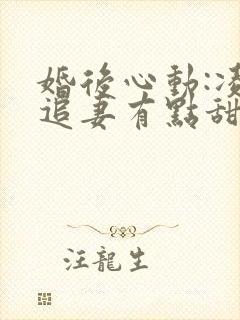 婚後心動:凌
追妻有點甜
汪龍生